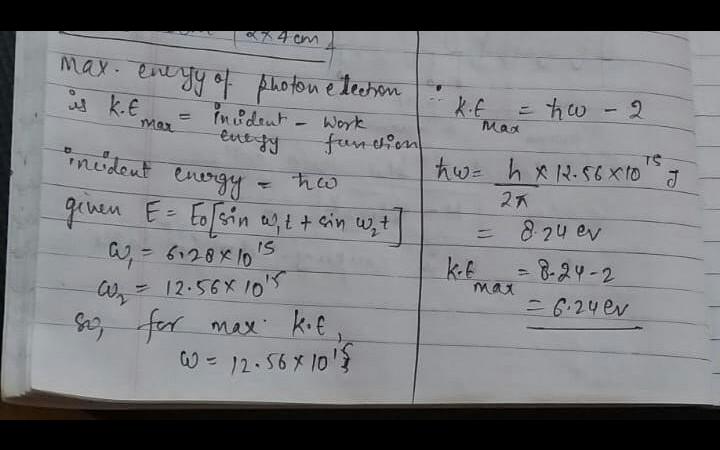 2x4cm
Max. energy of photon electron
is K.E max = incident energy - work function
incident energy = ħω
given E = E0[sin ω1t + sin ω2t]
ω1 = 6.28×10^15
ω2 = 12.56×10^15
so, for max. K.E,
ω = 12.56×10^15
∴ K.E max = ħω - 2
ħω = h/2π × 12.56×10^15 J
= 8.24 ev
K.E max = 8.24-2
= 6.24ev